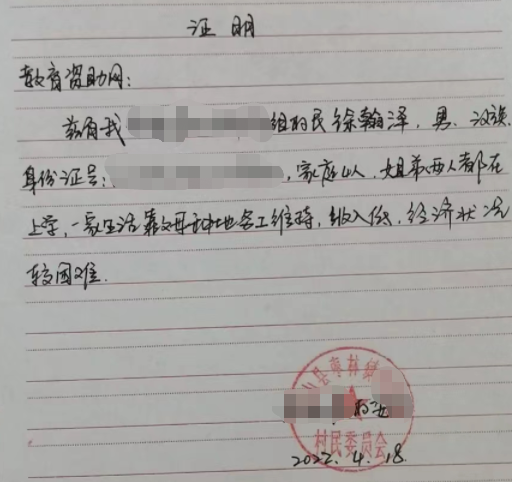 证明
教育资助网：
兹有我组的民徐翰泽，男，汉族
身份证号：，家庭4人，姐弟两人都在
上学，一家生活靠父母种地务工维持，收入低，经济状况
较困难．
县枣林
村民委员会
2022．4．18．